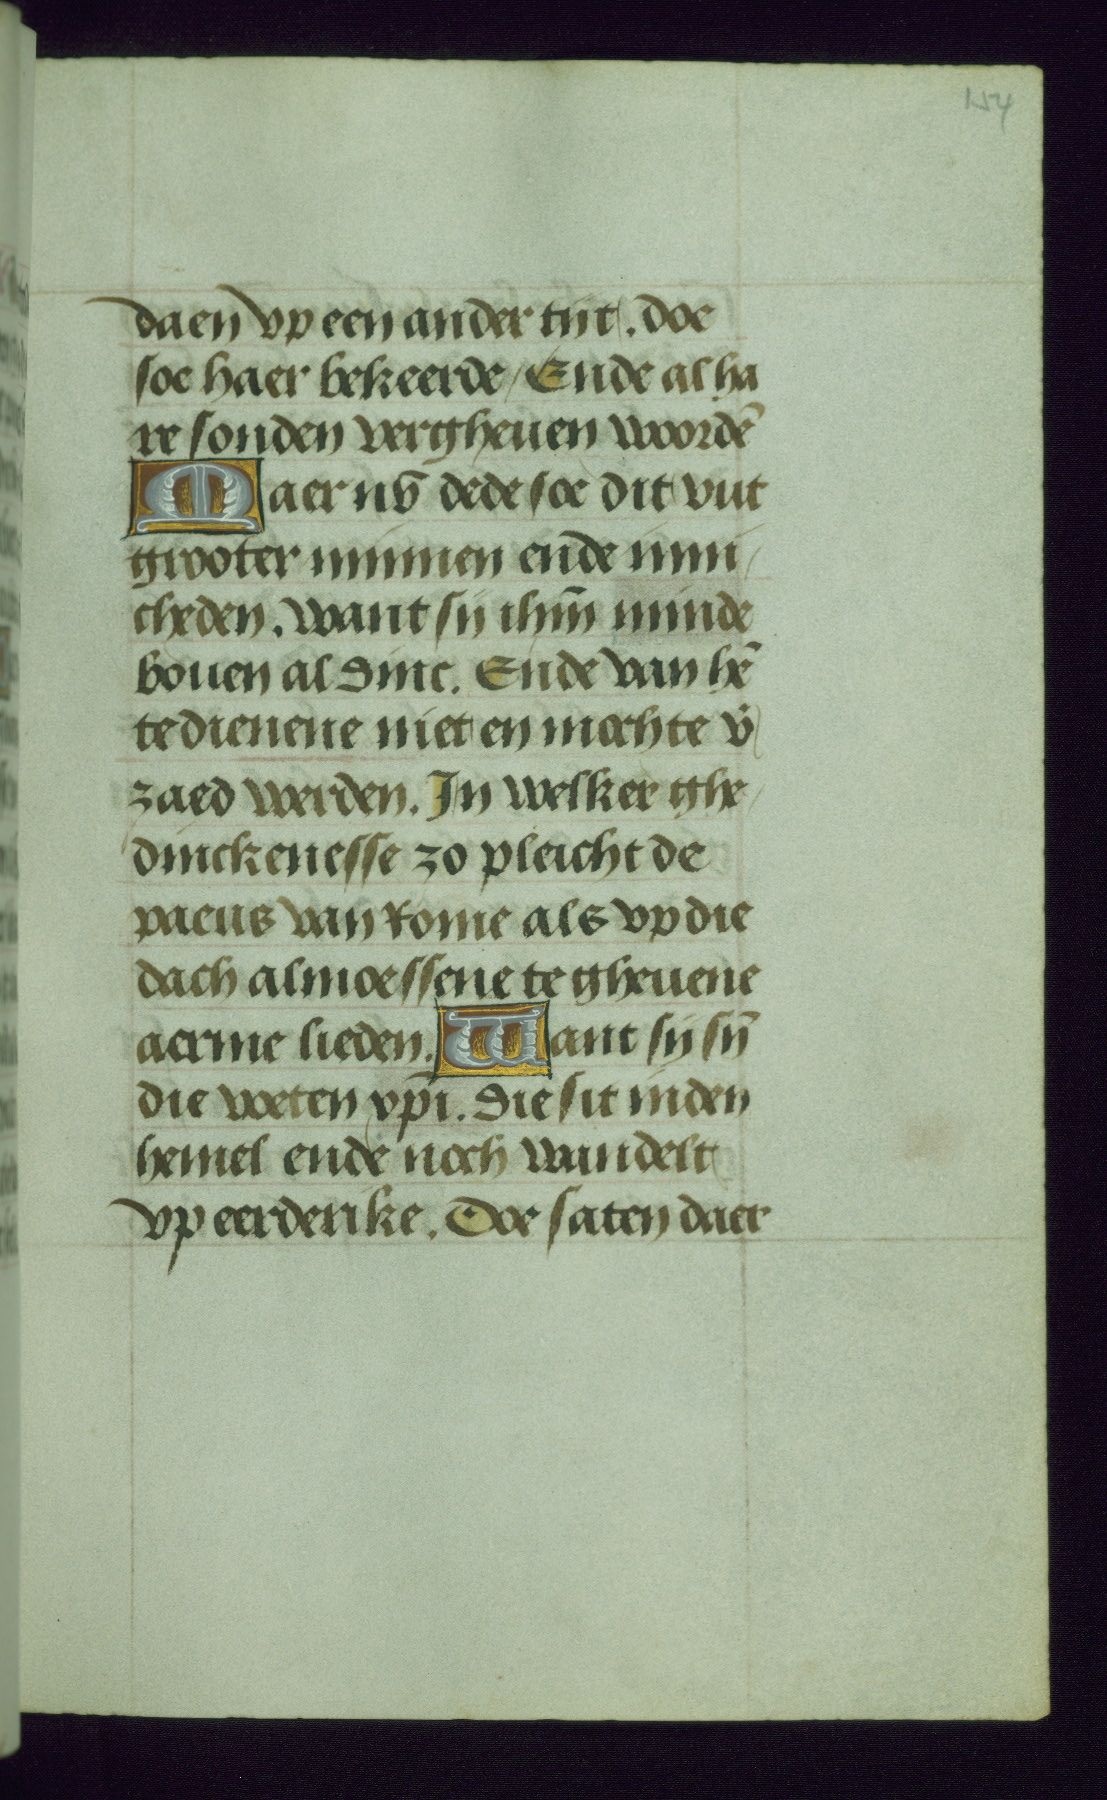 154
daen vp een ander tijt. doe
soe haer bekeerde / Ende al ha
re sonden vergheuen woordē
Maer nv̄ dede soe dit vut
grooter minnen ende inni /
cheden. Want sij ihm̄ minde
bouen al dinc. Ende van hē
te dienene niet en mochte v̄
zaed werden. In welker ghe /
dinckenesse zo pleicht de
paeus van Rome als vp die
dach almoessene te gheuene
aerme lieden. Want sij sȳ
die weten xp̄i. die sit inden
hemel ende noch wandelt
vp eerderike. Doe saten daer